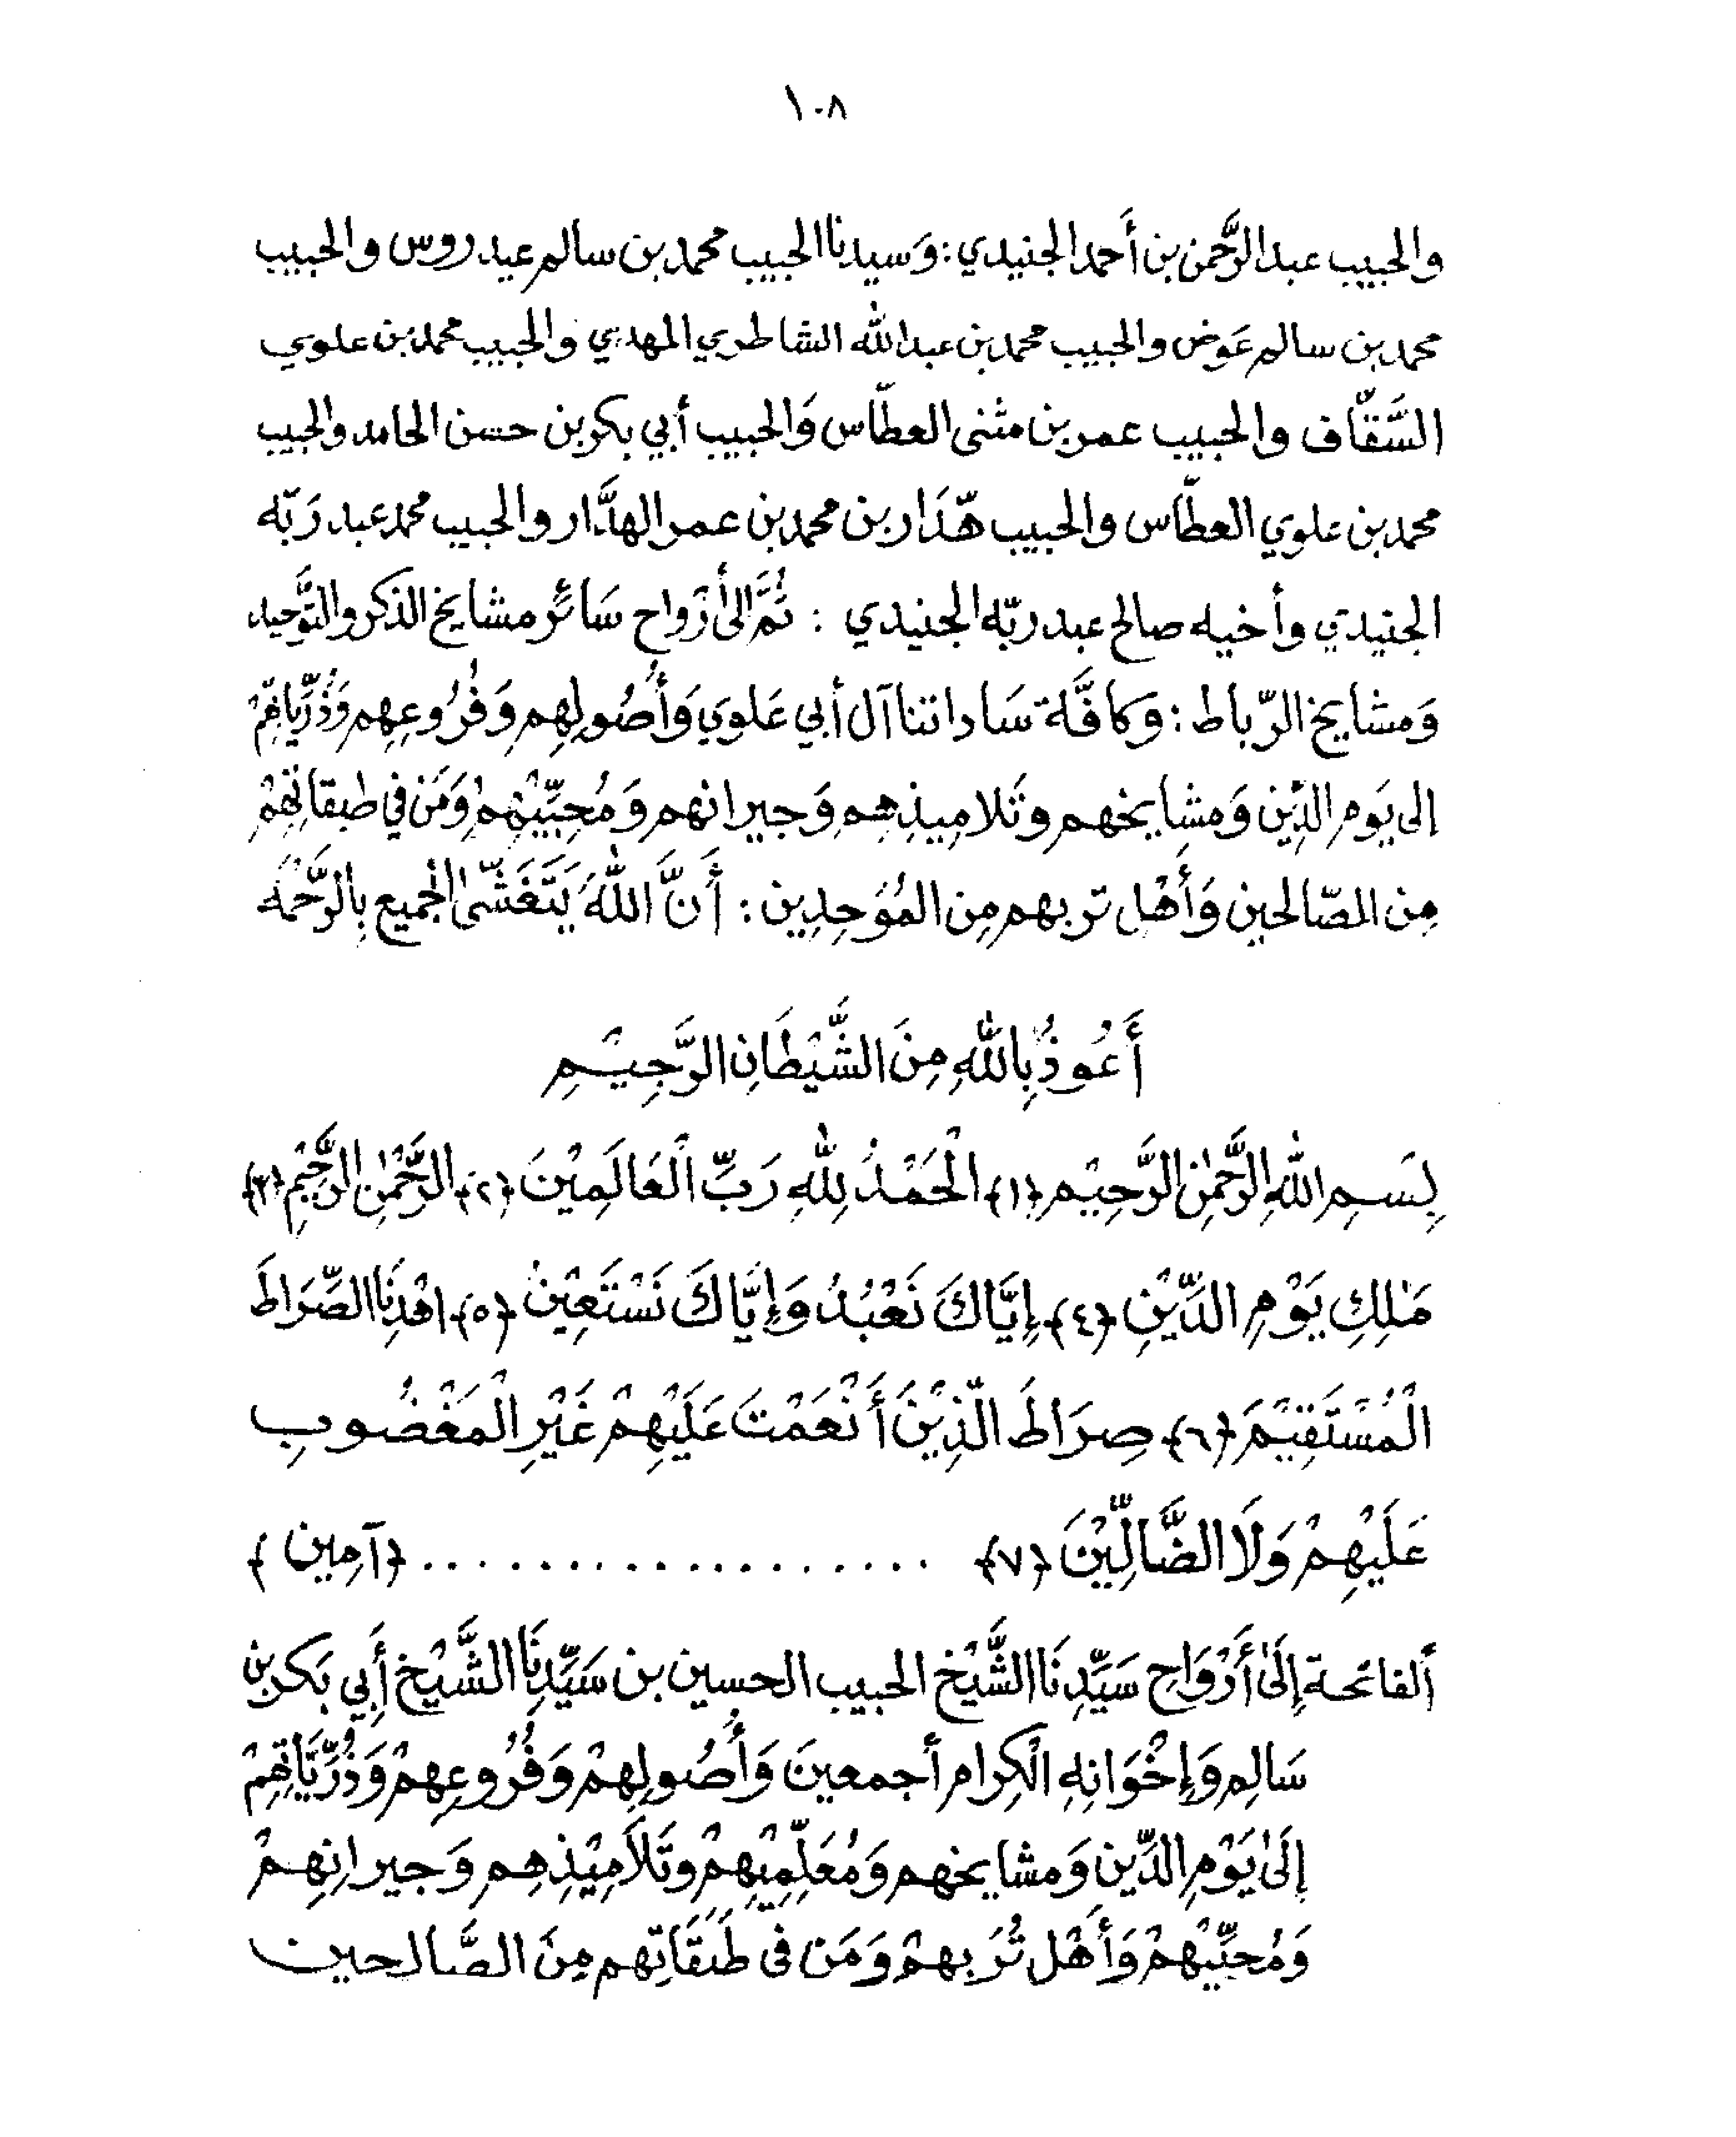 ١٠٨
والحبيب عبدالرَّحمن بن أَحمد الجنيدي : وَسيدنا الحبيب محمد بن سالم عيدروس والحبيب
محمد بن سالم عَوض والحبيب محمد بن عبدالله الشاطري المهدي والحبيب محمد بن علوي
السَّقّاف والحبيب عمر بن مثنى العطّاس وَالحبيب أبي بكر بن حسن الحامد والحبيب
محمد بن علوي العطّاس والحبيب هّدَار بن محمد بن عمر الهدَّار والحبيب محمد عبد رَبّه
الجنيدي وأخيه صالح عبد ربّه الجنيدي : ثُمَّ إلى أَرْواح سَائر مشايخ الذكر والتَّوحيد
وَمشايخ الرّباط : وَكافَّة سَاداتنا آل أبي عَلوي وَأُصُولِهِم وَفُرُوعِهِم وَذُرِّيَاتِهِمْ
إلى يَوم الدِّين وَمشايخهم وتَلامِيذِهِم وَجيرانهم وَمُحِبِّيْهِمْ وَمَن في طبقاتِهِمْ
مِن الصّالحين وَأَهْل تربهم مِن المُوَحِدِين : أَنَّ اللهَ يَتَغَشَّى الجميع بِالرَّحْمَه
أَعُوذُ بِاللهِ مِنَ الشَّيْطَانِ الرَّجِيْمِ
بِسَمِ اللهِ الرَّحْمٰنِ الرَّحِيْمِ ﴿١﴾ الْحَمْدُ لِلّٰهِ رَبِّ الْعَالَمِيْنَ ﴿٢﴾ الرَّحْمٰنِ الرَّحِيْمِ ﴿٣﴾
مَلِكِ يَوْمِ الدِّيْنِ ﴿٤﴾ إِيَّاكَ نَعْبُدُ وَإِيَّاكَ نَسْتَعِيْنُ ﴿٥﴾ اهْدِنَا الصِّرَاطَ
الْمُسْتَقِيْمَ ﴿٦﴾ صِرَاطَ الَّذِيْنَ أَنْعَمْتَ عَلَيْهِمْ غَيْرِ الْمَغْضُوبِ
عَلَيْهِمْ وَلَا الضَّالِّيْنَ ﴿٧﴾ .................. ﴿آمِين ﴾
ألفاتحة إِلَى أَرْوَاحِ سَيِّدِنَا الشَّيْخ الحبيب الحسين بن سَيِّدِنَا الشَّيْخ أَبِي بَكر بن
سَالِم وَإِخْوَانِهِ الْكِرَام أجمعينَ وَأُصُولِهِمْ وَفُرُوعِهِمْ وَذُرِّيَّاتِهِمْ
إِلَى يَوْمِ الدِّين وَمشايخهم وَمُعَلِّمِيْهِمْ وتَلَامِيْذِهِم وَجيرانِهِمْ
وَمُحبِّيْهِمْ وَأَهْل تُرَبِهِمْ وَمَن فى طَبَقَاتِهِم مِنَ الصَّالحين